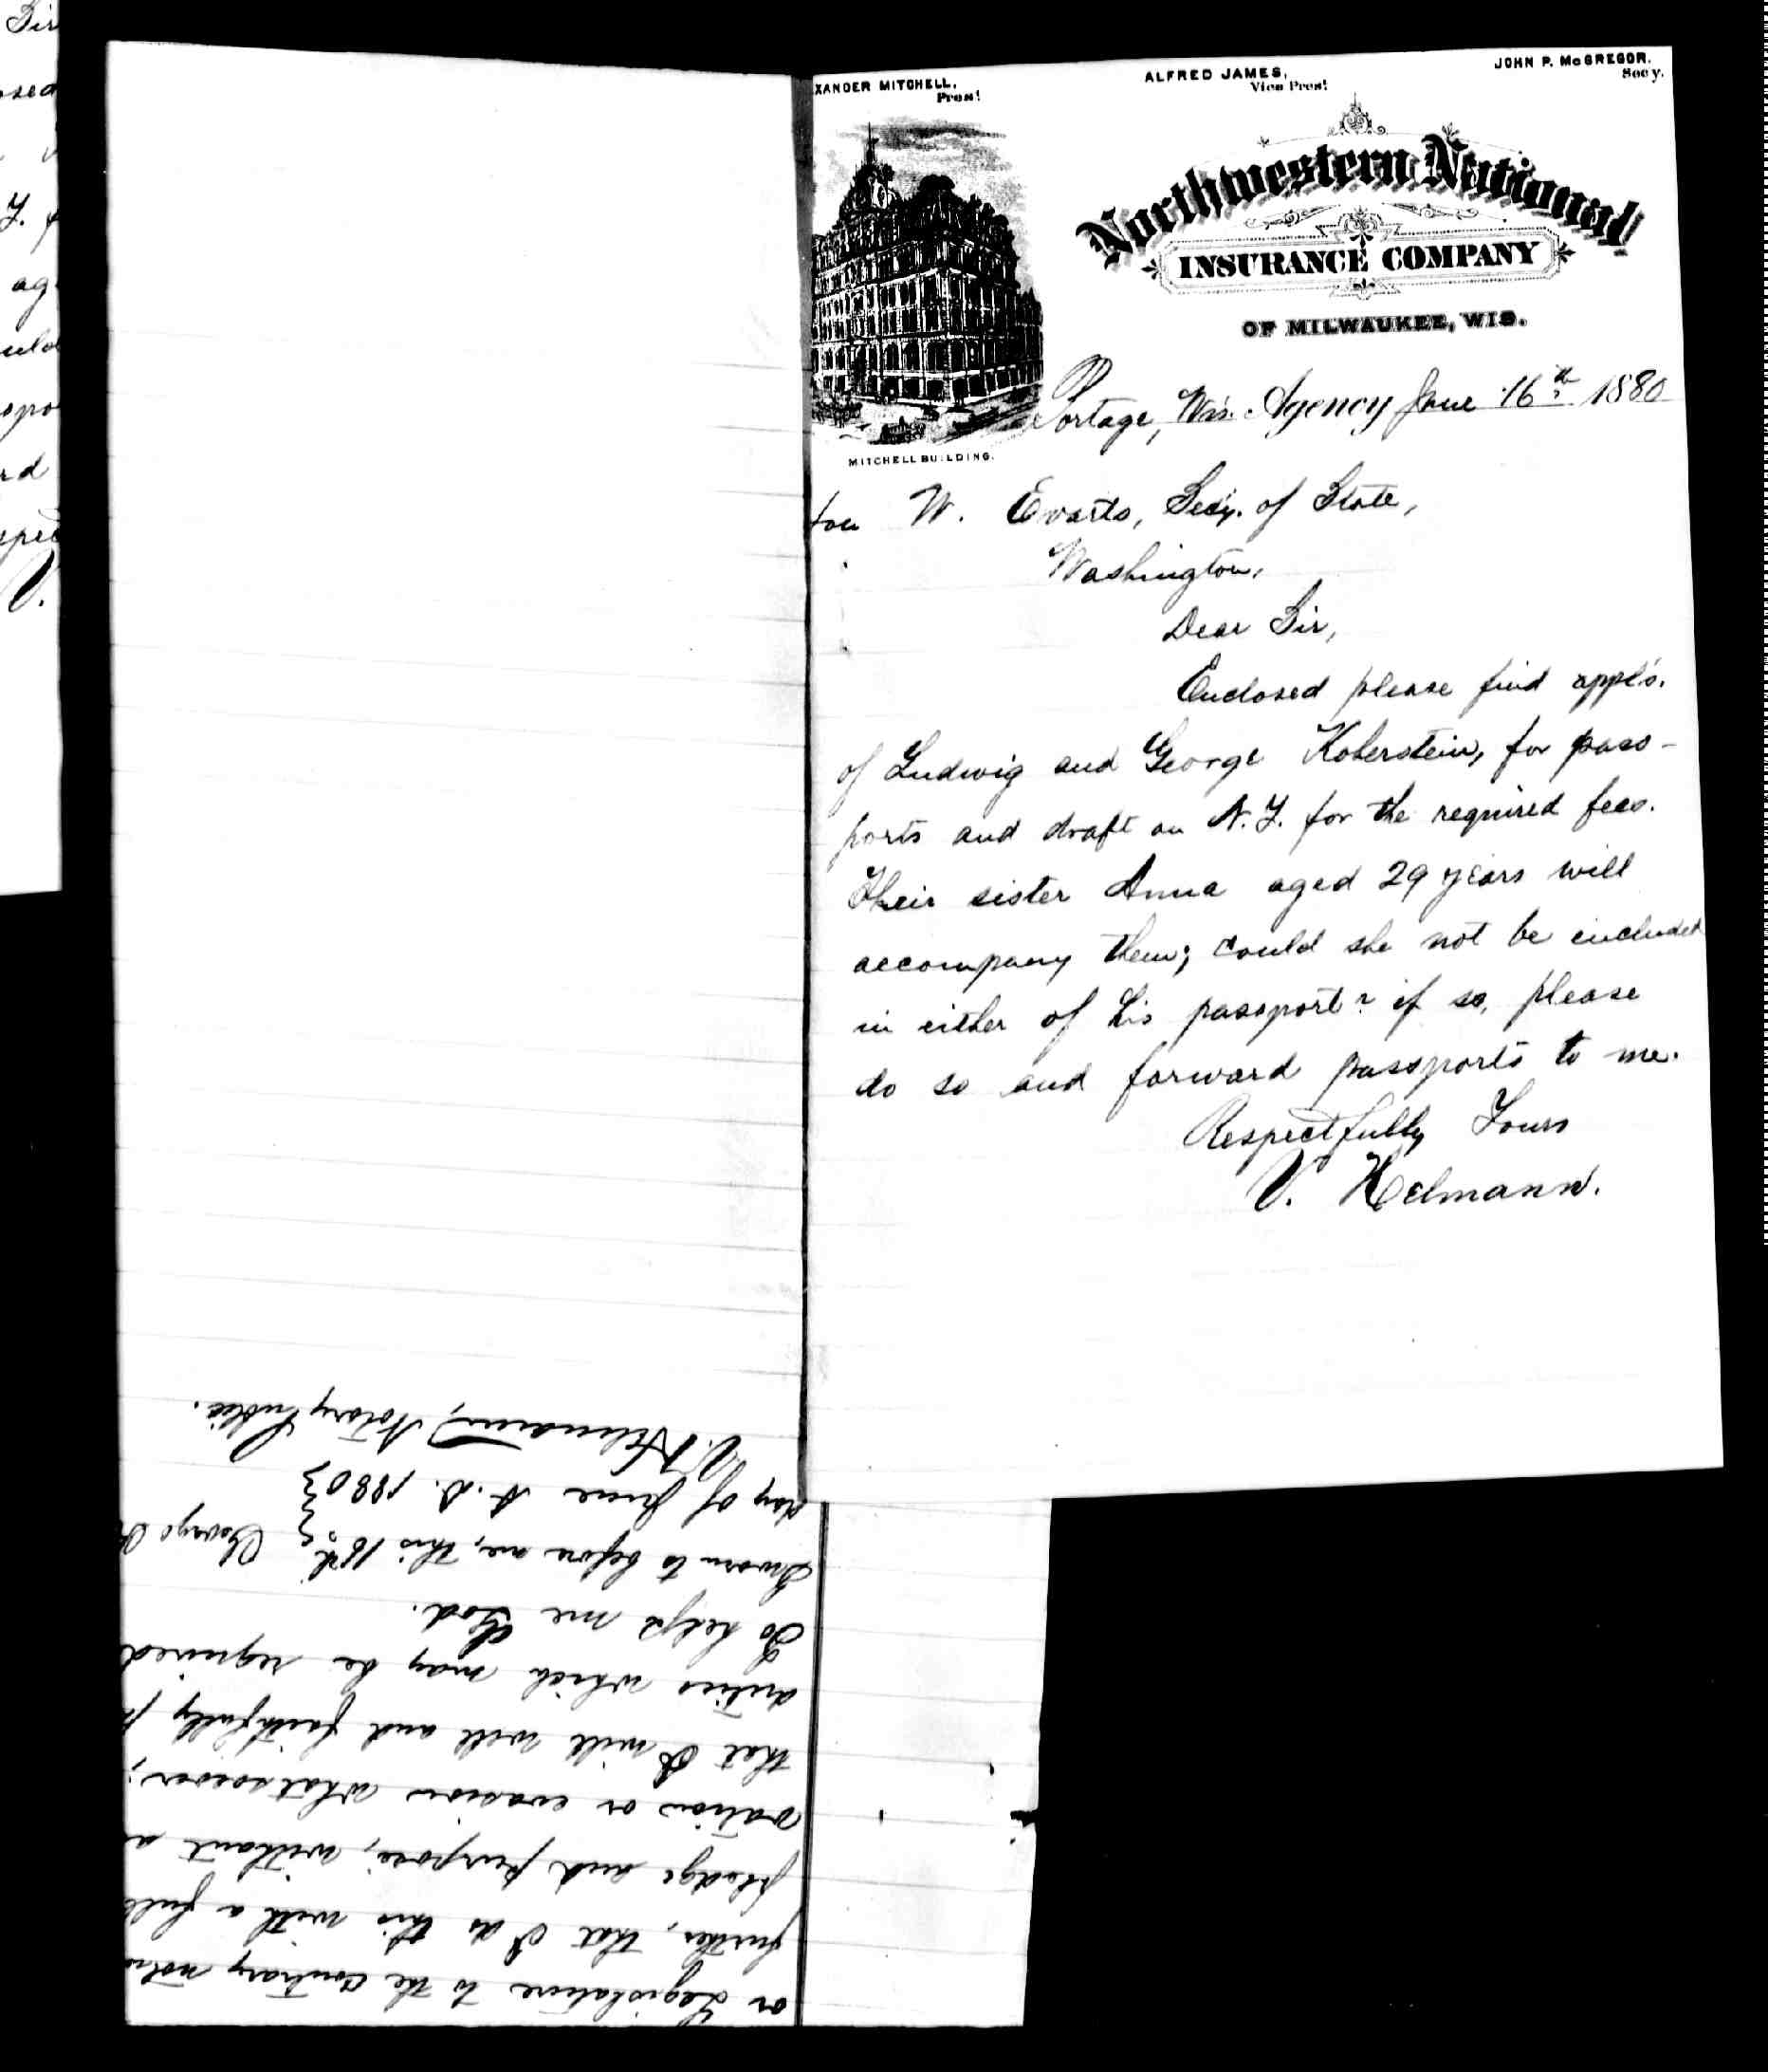 Sir
osed
Y. f
ag
uld
spo
rd
spec
V.
XANDER MITCHELL,
Pres!
ALFRED JAMES,
Vice Pres!
JOHN P. McGREGOR.
Secy.
Northwestern National
INSURANCE COMPANY
OF MILWAUKEE, WIS.
MITCHELL BUILDING.
Portage, Wis. Agency June 16th 1880
Hon W. Evarts, Secy. of State,
Washington,
Dear Sir,
Enclosed please find appl's.
of Ludwig and George Koberstein, for pass-
ports and draft on N.Y. for the required fees.
Their sister Anna aged 29 years will
accompany them; could she not be included
in either of his passport? if so, please
do so and forward passports to me.
Respectfully Yours
V. Helmann.
or Legislature to the contrary notw
further, that I do this with a full
pledge and purpose, without a
vation or evasion whatsoever;
that I will well and faithfully p
duties which may be required
So help me God.
Sworn to before me, this 16th } George K
day of June A.D. 1880 }
V. Helmann, Notary Public.